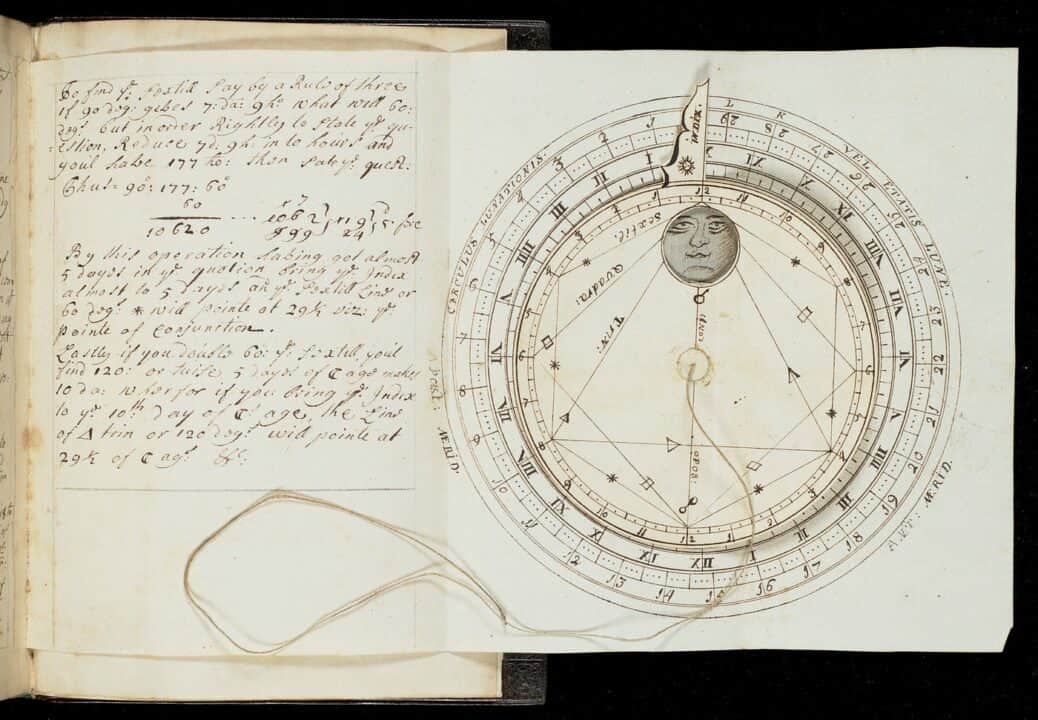 To find yᵉ Sextill say by a Rule of three
if 90 deg: gibes 7: da: 9hᵒ what will 60:
degˢ but in order Rightly to State yᵉ qu-
:estion, Reduce 7d: 9h: in to hours and
youl habe 177 ho: then state yᵉ quest:
Thus= 90: 177: 60
60
10620
By this operation habing got almost
5 dayes in yᵉ quotion bring yᵉ Index
almost to 5 dayes an yᵉ Sextill Line or
60 deg: * will pointe at 29½ viz: yᵉ
pointe of Conjunction.
Lastly if you double 60: yᵉ Sextill, youl
find 120: or twise 5 dayes of ☾ age makes
10 da: wherfor if you bring yᵉ Index
to yᵉ 10th day of ☾ˢ age the Line
of △ trin or 120 degˢ will pointe at
29½ of ☾ agᵉ &c:
INDEX.
CIRCULUS LUNATIONIS.
VEL ETATIS LUNE.
1 2 3 4 5 6 7 8 9 10 11 12 13 14 15 16 17 18 19 20 21 22 23 24 25 26 27 28 29
I II III IIII V VI VII VIII VIIII X XI XII
I II III IIII V VI VII VIII VIIII X XI XII
Sextil:
Quadra:
Trin:
OPOS
MERID.
ANT: MERID.